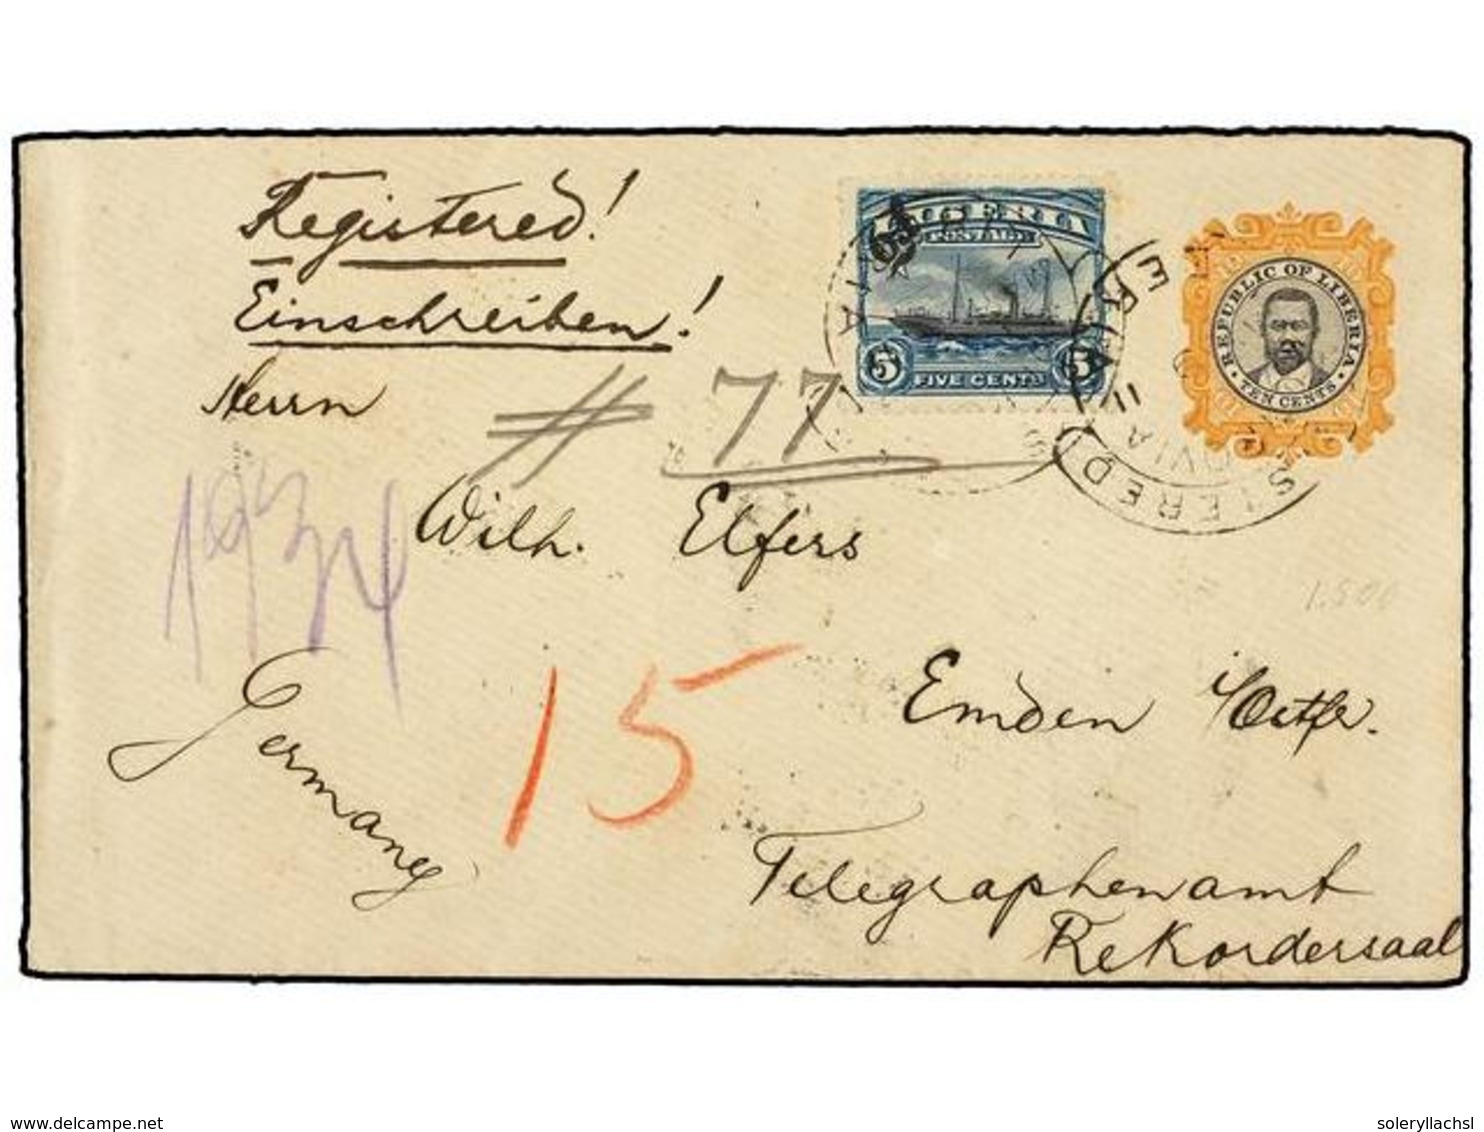 Registered!
Einschreiben!
Herrn
# 77
Wilh. Elfers
1924
15
Emden i/Ostfr.
Germany
Telegraphenamt
Rekordersaal
LIBERIA
POSTAGE
5 5
FIVE CENTS
REPUBLIC OF LIBERIA
TEN CENTS
1.500
delcampe.net
soleryllachsl